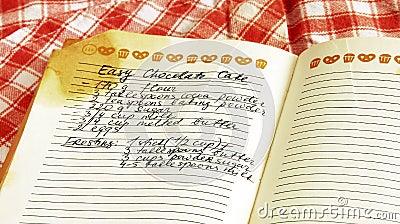 Easy Chocolate Cake
g flour
tablespoons cocoa powder
teaspoons baking powder
g sugar
3/4 cup milk
1/4 cup melted butter
2 eggs
1 shell (1/2 cup)
3 tablespoons butter
3 cups powder sugar
4-5 tablespoons milk
dreamstime.com